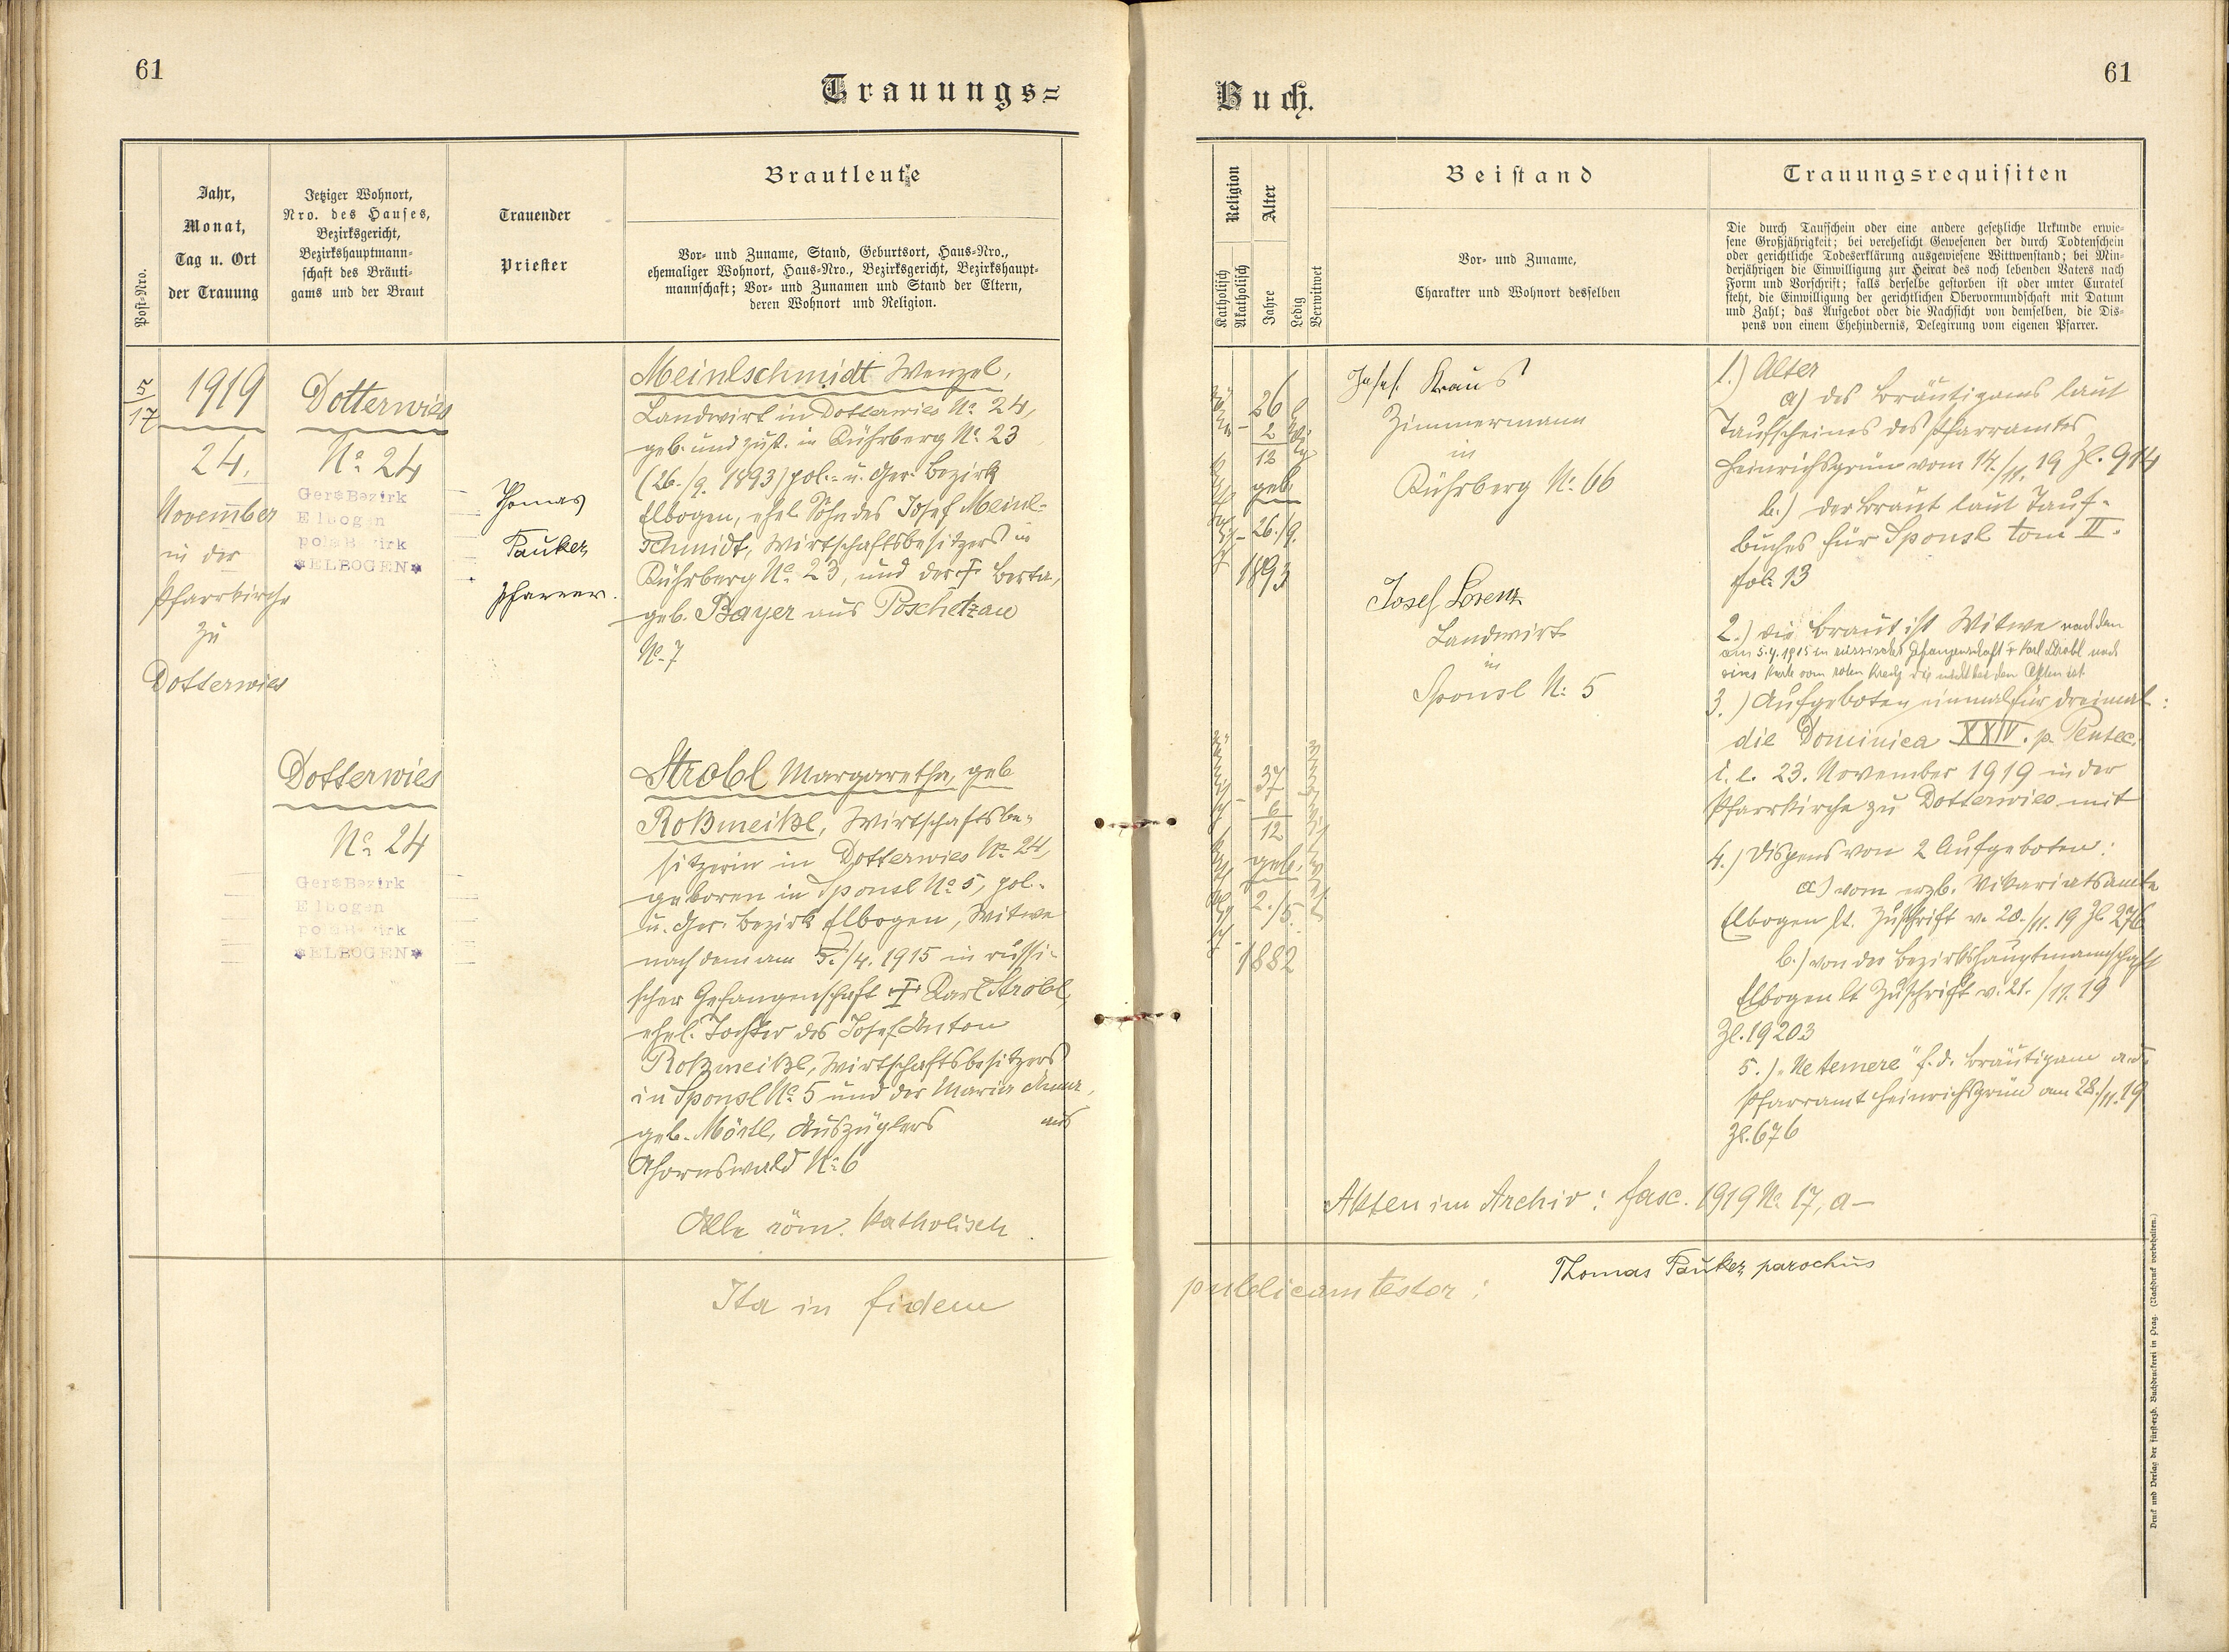 61
Trauungs=
Post-Nro.
Jahr,
Monat,
Tag u. Ort
der Trauung
Jetziger Wohnort,
Nro. des Hauses,
Bezirksgericht,
Bezirkshauptmann-
schaft des Bräuti-
gams und der Braut
Trauender
Priester
Brautleute
Vor- und Zuname, Stand, Geburtsort, Haus-Nro.,
ehemaliger Wohnort, Haus-Nro., Bezirksgericht, Bezirkshaupt-
mannschaft; Vor- und Zunamen und Stand der Eltern,
deren Wohnort und Religion.
5
17
1919
24.
November
in der
Pfarrkirche
zu
Dotterwies
Dotterwies
No 24
Ger.Bezirk
Elbogen
pol.Bezirk
*ELBOGEN*
Thomas
Pauker
Pfarrer.
Meinlschmidt Wenzel,
Landwirt in Dotterwies No 24,
geb. und zust. in Kührberg No 23
(26./9. 1893) pol.- u. Ger. Bezirk
Elbogen, ehel. Sohn des Josef Meinl-
schmidt, Wirtschaftsbesitzers in
Kührberg No 23, und der † Berta,
geb. Bayer aus Poschetzau
No 7
Dotterwies
No 24
Ger.Bezirk
Elbogen
pol.Bezirk
*ELBOGEN*
Strobl Margaretha, geb
Roßmeißl, Wirtschaftsbe-
sitzerin in Dotterwies No 24,
geboren in Sponsl No 5, pol.-
u. Ger. Bezirk Elbogen, Witwe
nach dem am 5./4. 1915 in russi-
scher Gefangenschaft † Karl Strobl,
ehel. Tochter des Josef Anton
Roßmeißl, Wirtschaftsbesitzers
in Sponsl No 5 und der Maria Anna,
geb. Mörtl, Auszüglers aus
Ahornswald No 6
Alle röm. katholisch.
Ita in fidem
61
Buch.
Religion
Katholisch
Akatholisch
Alter
Jahre
Ledig
Verwitwet
Beistand
Vor- und Zuname,
Charakter und Wohnort desselben
Trauungsrequisiten
Die durch Taufschein oder eine andere gesetzliche Urkunde erwie-
sene Großjährigkeit; bei verehelicht Gewesenen der durch Todtenschein
oder gerichtliche Todeserklärung ausgewiesene Wittwenstand; bei Min-
derjährigen die Einwilligung zur Heirat des noch lebenden Vaters nach
Form und Vorschrift; falls derselbe gestorben ist oder unter Curatel
steht, die Einwilligung der gerichtlichen Obervormundschaft mit Datum
und Zahl; das Aufgebot oder die Nachsicht von demselben, die Dis-
pens von einem Ehehindernis, Delegirung vom eigenen Pfarrer.
26
2
12
geb.
26./9.
1893
Josef Kraus
Zimmermann
in
Kührberg No 66
Josef Lorenz
Landwirt
in
Sponsl No 5
37
6
12
geb.
2./5.
1882
1.) Alter
a) des Bräutigams laut
Taufscheines des Pfarramtes
Heinrichsgrün vom 14./11. 19 Zl. 914
b.) der Braut laut Tauf-
buches für Sponsl tom II.
fol. 13
2.) die Braut ist Witwe nach dem
am 5.4.1915 in russischer Gefangenschaft † Karl Strobl nach
einer Karte vom roten Kreuz die nicht bei den Akten ist.
3.) Aufgeboten einmal für dreimal:
die Dominica XXIV. p. Pentec.
i. e. 23. November 1919 in der
Pfarrkirche zu Dotterwies mit
4.) Dispens von 2 Aufgeboten:
a) vom erzb. Vikariatsamte
Elbogen lt. Zuschrift v. 20./11. 19 Zl. 276
b.) von der Bezirkshauptmannschaft
Elbogen lt Zuschrift v. 21./11. 19
Zl. 19203
5.) "Ne temere" f. d. Bräutigam ad
Pfarramt Heinrichsgrün am 28./11. 19
Zl. 676
Akten im Archiv: fasc. 1919 No 17, a-
publicam testor:
Thomas Pauker parochus
Druck und Verlag der fürsterzb. Buchdruckerei in Prag. (Nachdruck vorbehalten.)